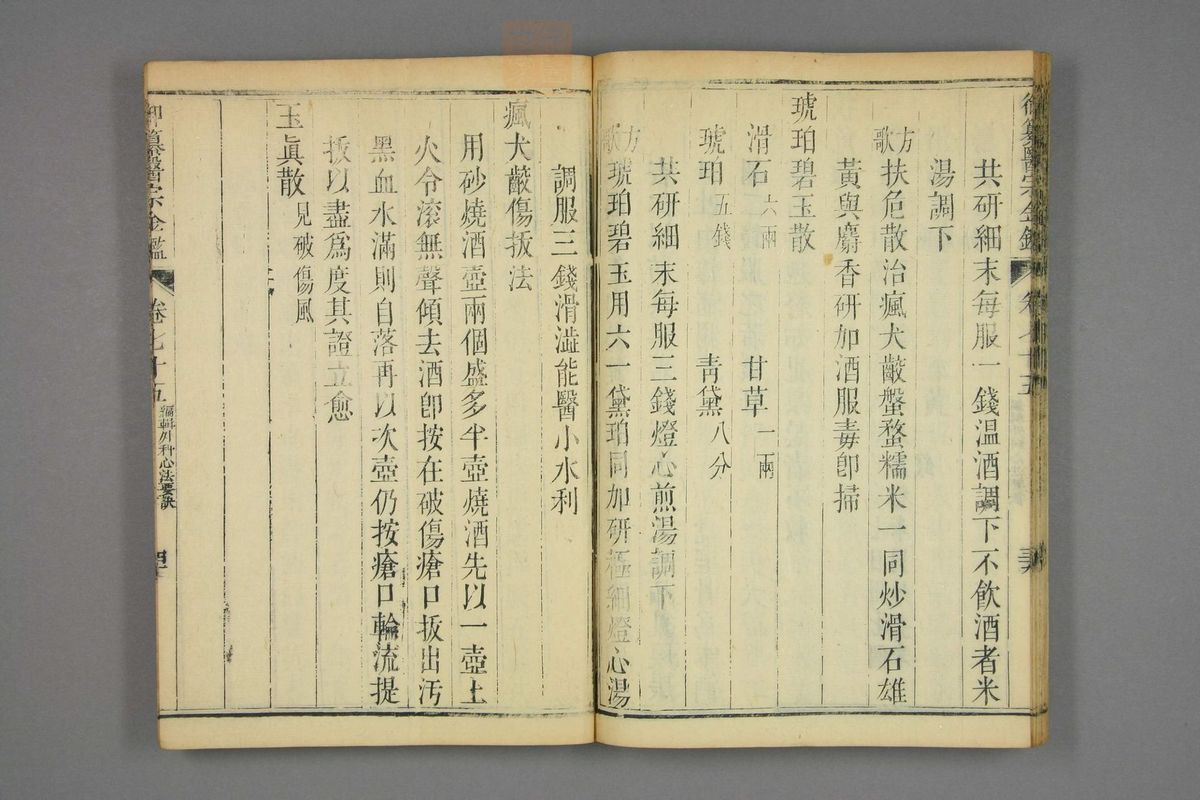 共研細末每服一錢温酒調下不飲酒者米
湯調下
方歌
扶危散治瘋犬齩螌蝥糯米一同炒滑石雄
黃與麝香研加酒服毒卽掃
琥珀碧玉散
滑石六兩 甘草一兩
琥珀五錢 青黛八分
共研細末每服三錢燈心煎湯調下
方歌
琥珀碧玉用六一黛珀同加研極細燈心湯
調服三錢滑澁能醫小水利
瘋犬齩傷拔法
用砂燒酒壺兩個盛多半壺燒酒先以一壺上
火令滚無聲傾去酒卽按在破傷瘡口拔出汚
黑血水滿則自落再以次壺仍按瘡口輪流提
拔以盡爲度其證立愈
玉眞散見破傷風
御纂醫宗金鑑
卷七十五
編輯外科心法要訣